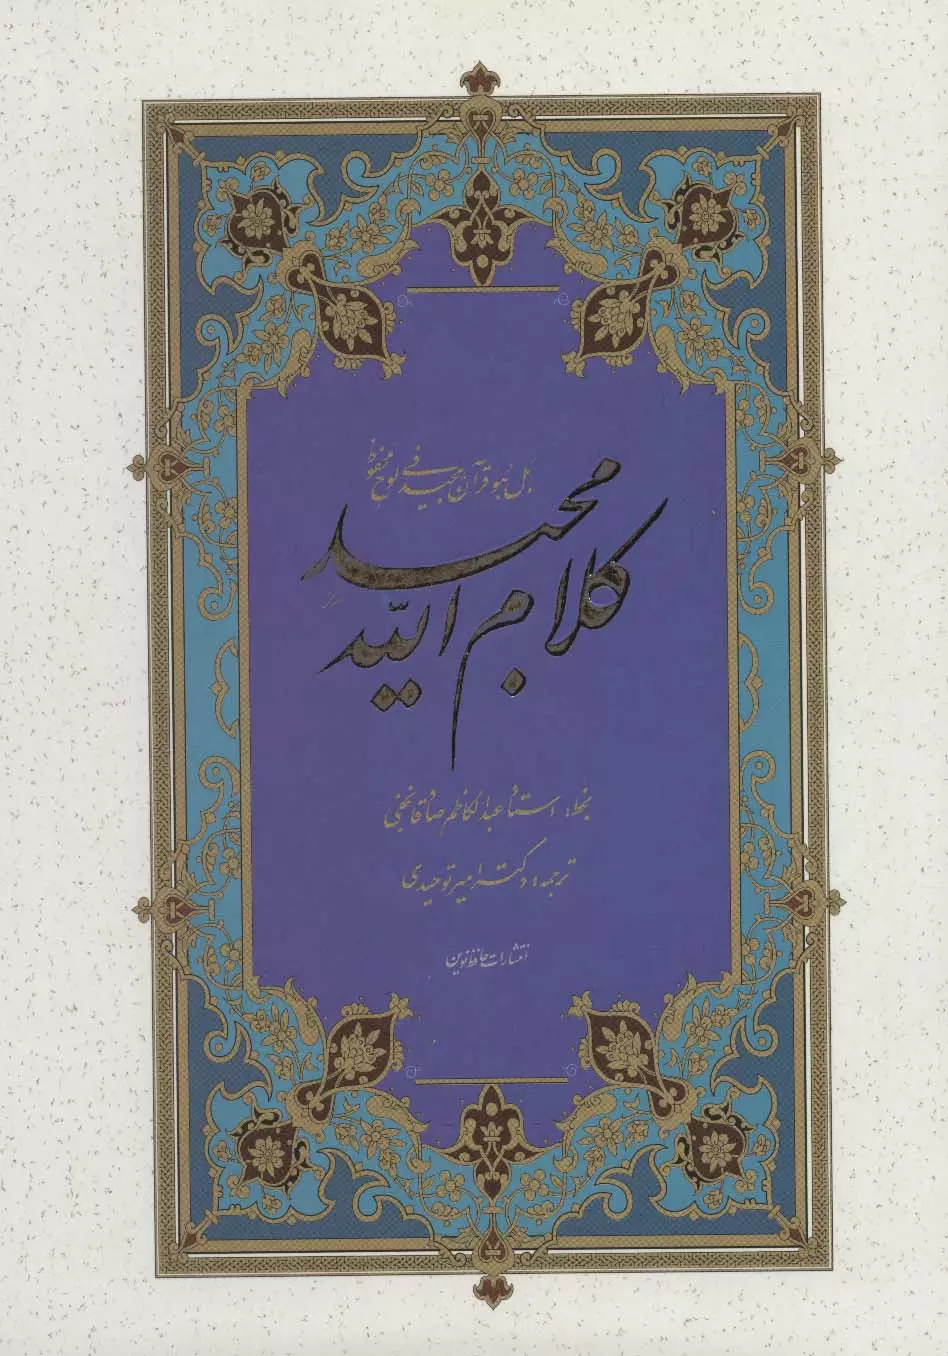 بل هو قرآن مجید فی لوح محفوظ
کلام الله مجید
بخط: استاد عبدالکاظم صادقا نجفی
ترجمه: دکتر امیر توحیدی
انتشارات حافظ نوین